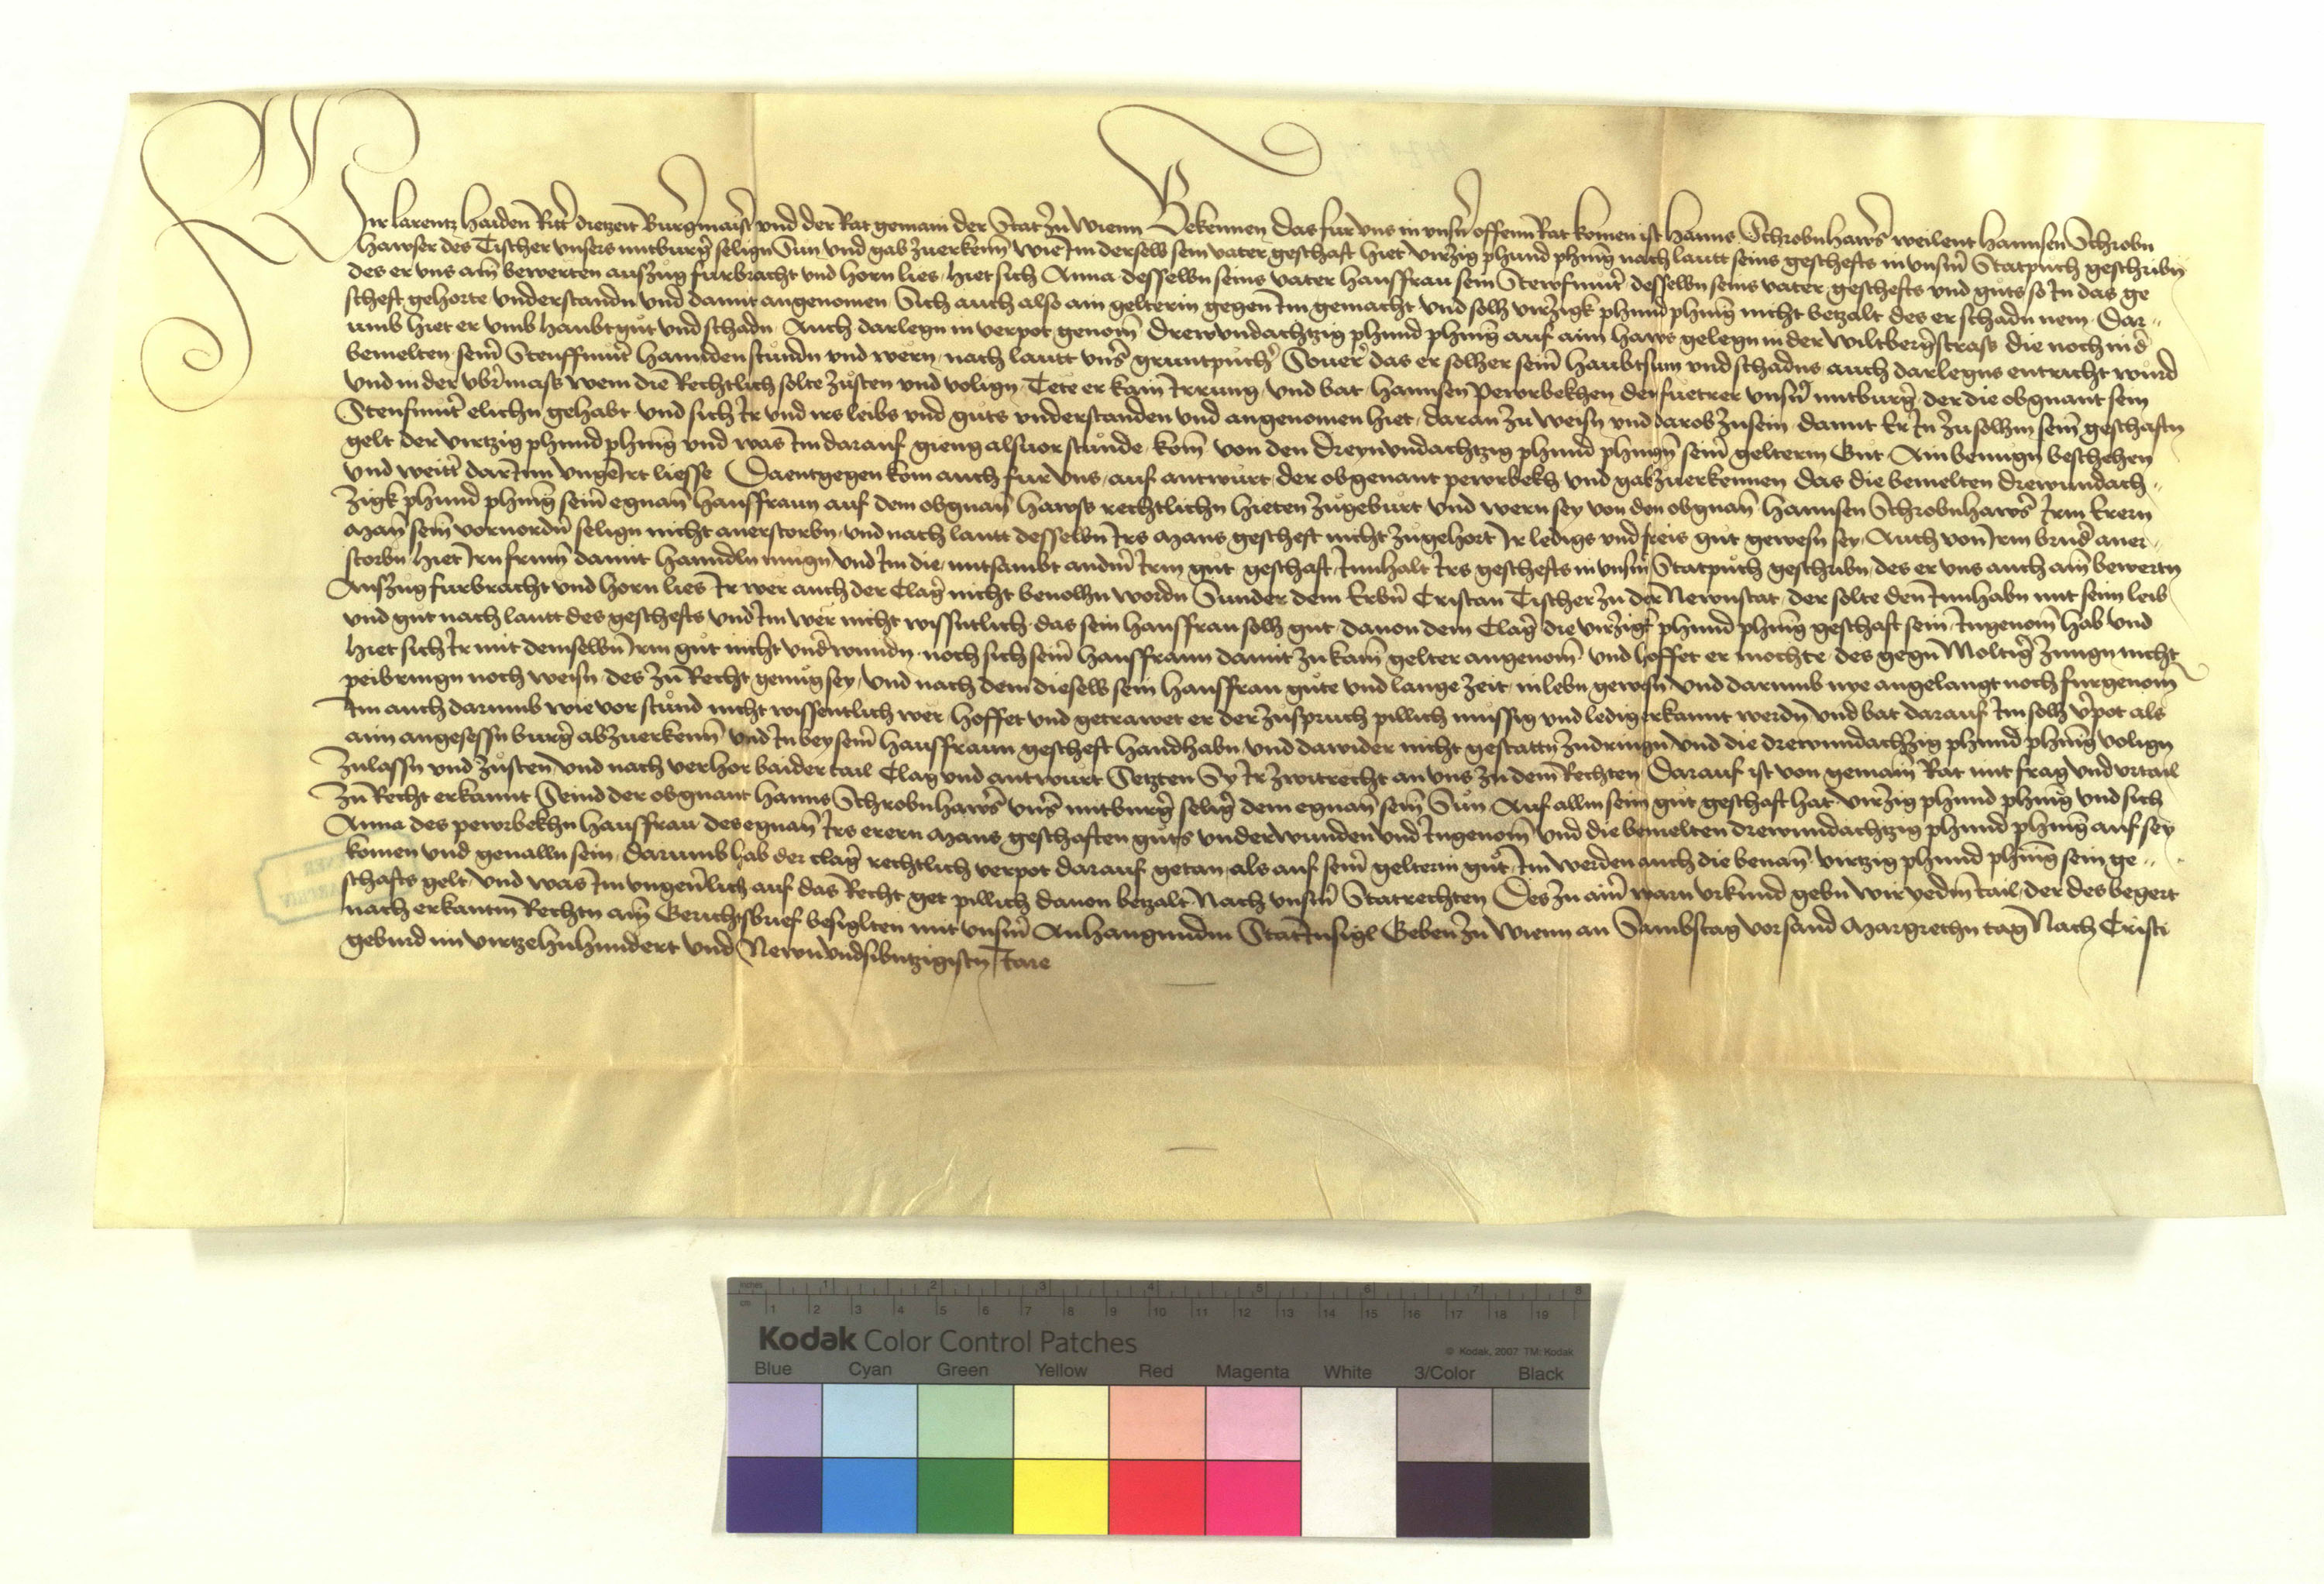 Wir larentz haiden Ritt(er) dietzeit Burgermaist(er) vnd der Rat gemain der Stat zu Wienn Bekennen das fur vns in vnsn offenn Rat komen ist Hanns Schrobnhaws(er) weilent Hannsen Schrobn
hawser des Tischer vnsers mitburg(er) selign Sun vnd gab zuerkenn wie Im derselb sein vater geschaft hiet virtzig phund phenig nach lautt seins geschefts in vnsm Statpuch geschribn
des er vns aim bewerten auszug furbracht vnd horn lies, hiet sich Anna desselbn seins vater hausfrau sein Stewfmut(er) desselbn seins vater geschefts vnd guts so In das ge
scheft gehorte vnderstandn vnd damit angenomen Sich auch also ain gelterin gegen Im gemacht vnd solh virtzigk phund phenig nicht betzalt des er schadn nem Dar-
umb hiet er vmb haubtgut vnd schadn Auch darlegn in verpot genom Drewundachtzig phund phenig auf aim haws gelegn in der wiltbergstrass die noch in d(er)
bemelten seinr Steuffmut(er) hannden stundn vnd wern, nach lautt vnsers gruntpuchs Souer das er solher seinr haubtsum vnd schadns auch darlegns entricht wurd
vnd in der vbrmass wem die Rechtlich solte zusten vnd volign, Tete er kain Irrung, vnd bat Hannsen Pewrbekhen den fuetrer vnsn mitburg(er) der die obgnant sein
Steufmut(er) elichn gehabt vnd sich Ir vnd irs leibs vnd guts vnderstanden vnd angenomen hiet, daran zu weisn vnd darob zusein damit Er In zu solhm seinm geschaftn
gelt der virtzig phund phenig vnd was Im darauf gieng als vor stunde, kom von den Dreyundachtzig phund phenign seinr gelterin Gut Ain benugn beschehen
vnd weitt(er) dar Inn vngeirt liesse Daentgegen kom auch fur vns auf antwurt der obgenant pewrbekh vnd gab zuerkennen das die bemelten drewundach-
zigk phund phenig seinr egnan(ten) hausfraun auf dem obgnan(ten) hawss rechtlichn hieten zugeburt vnd wern sey von den obgnan(ten) Hannsen Schrobnhaws(er) Irm Ersrn
man seim voruordn selign nicht anerstorbn, vnd nach lautt desselbn Irs mans gescheft nicht zugehort Ir ledigs vnd freis gut gewesn sey, Auch von Irm brud(er) aner-
storbn, hiet Irn frumn damit hanndln mugn, vnd Im die, mitsambt andm Irm gut geschaft Innhalt Irs geschefts in vnsm Statpuch geschribn, des er vns auch aim bewertn
Auszug furbracht vnd horn lies Ir wer auch der Clag(er) nicht benolhn wordn Sunder dem Erbn Cristan Tischer zu der Newnstat, der solte den Innhabn mit seim leib
vnd gut nach lautt des geschefts vnd Im wer nicht wissntlich, das sein hausfrau solh gut dauon dem Clag(er) die virtzigk phund phenig geschaft sein Ingenom hab vnd
hiet sich Ir mit demselbn Irm gut nicht vnd(er)wundn, noch sich seinr hausfraun damit zu kaim gelter angenom vnd hoffet er mochte des gegn Moltig(er) zungn nicht
peibringn noch weisn, des zu Recht genug sey, vnd nach dem dieselb sein hausfrau gute vnd lange zeit, in lebn gewesn vnd darumb nye angelangt noch furgenom
Im auch darumb wie vor stund nicht wissentlich wer, hoffet vnd getrawet er der zuspruch pillich mussig vnd ledig erkannt werdn vnd bat darauf Im solh v(er)pot als
aim angesessn burg(er) abzuerkenn vnd In bey seinr hausfraun gescheft handhabn, vnd dawider nicht gestattn zudringn vnd die drewundachtzig phund phenig volign
zulassn vnd zusten, vnd nach verhor baider tail Clag vnd antwurt Setzten Sy Ir zwitrecht an vns zu dem Rechten Darauf ist von gemaim Rat mit frag vnd vrtail
zu Recht erkannt Seind der obgnant Hanns Schrobnhaws(er) vns(er) mitburg(er) selig(er) dem egnan(ten) seinm Sun Auf allm seim gut geschaft hat virtzig phund phenig vnd sich
Anna des pewrbekhn hausfrau des egnan(ten) Irs erern mans geschaften guts vnderwunden vnd Ingenom vnd die bemelten drewundachtzig phund phenig auf sey
komen vnd geualln sein, darumb hab der clag(er) rechtlich verpot darauf getan als auf seinr gelterin gut Im werden auch die benan(ten) virtzig phund phenig sein ge-
schafts gelt, vnd was Im vngeuerlich auf das Recht get pillich dauon betzalt Nach vnsm Statrechten Des zu aim warn vrkund gebn wir yedm tail, der des begert
nach erkantm Rechtn aim Gerichtsbrief besiglten mit vnsm Anhangundm StatInsigl Geben zu Wienn an Sambstag vor sand Margrethn tag Nach Cristi
geburd im virtzehnhundert vnd Newnundsibntzigistn Iare
Kodak Color Control Patches
© Kodak, 2007 TM: Kodak
Blue Cyan Green Yellow Red Magenta White 3/Color Black